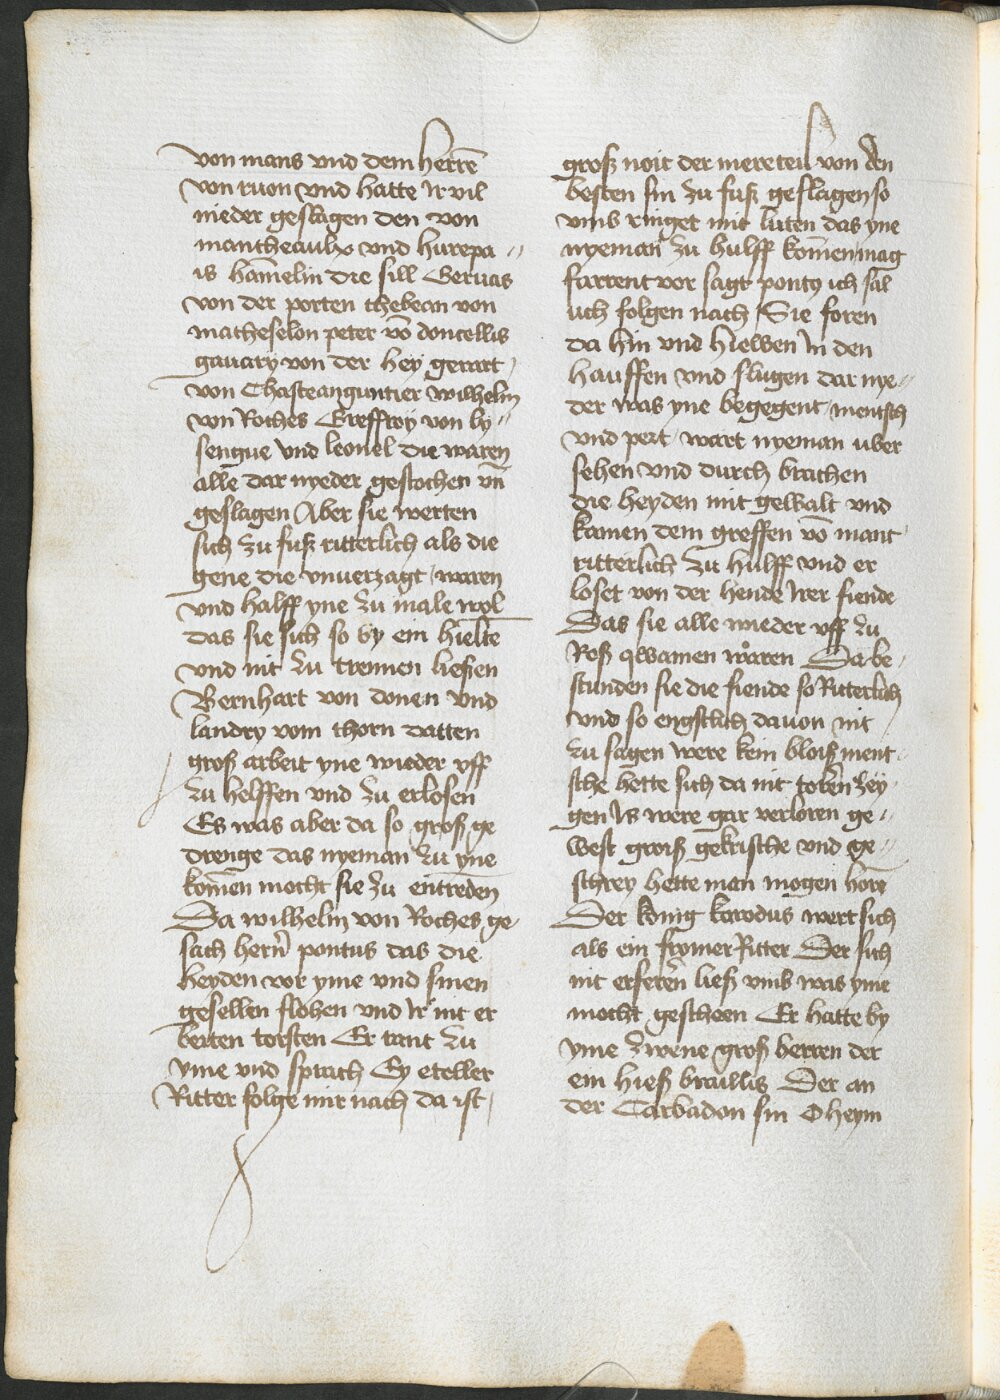 von mans vnd dem herrē
von ruon vnd hatte Ir vil
nieder geslagen den von
mantheaulx vnd hurepa
is hāmelin die sill Geruas
von der porten thebean von
matheselon peter vō doncellis
gauary von der hey gerart
von Chasteanguntier wilhelm
von Roches Greffroy von by
sengue vnd leonel die waren
alle dar nyeder gestochen vn̄
geslagen Aber sie werten
sich zu fuß ritterlich als die
gene die vnuerzagt waren
vnd halff yne zu male wol
das sie sich so by ein hieltē
vnd nit zu trennen ließen
Bernhart von donen vnd
landry vom thorn datten
groß arbeit yne wieder vff
zu helffen vnd zu erlosen
Es was aber da so groß ge
drenge das nyeman zu yne
komen mocht sie zu entreden
Da wilhelm von Roches ge
sach hern̄ pontus das die
heyden vor yme vnd sinen
gesellen flohen vnd Ir nit er
beiten torsten Er rant zu
yme vnd sprach Ey eteller
Ritter folge mir nach da ist
groß noit der mereteil von den
besten sin zu fuß geslagen so
vmb ringet mit luten das yne
nyeman zu hulff komen mag
farrent vor sagt pontus ich sal
uch folgen nach Sie foren
da hin vnd hiewen In den
hauffen vnd slugen dar nye
der was yne begegent mentsch
vnd pert wart nyeman uber
sehen vnd durch brachen
die heyden mit gewalt vnd
kamen dem greffen vō mant
ritterlich zu hulff vnd er
loset von der hende Irer fiende
Das sie alle wieder vff zu
Roß qwamen waren Da be
stunden sie die fiende so Ritterlich
vnd so engstlich dauon nit
zu sagen were kein bloiß ment
sche hette sich da nit toren zey
gen Is were gar verloren ge
west groiß gekrische vnd ge
schrey hette man mogen horn
Der konig karodus wert sich
als ein fromer Ritter Der sich
nit erferen ließ vmb was yme
mocht gescheen Er hatte by
yme zwene groß herren der
ein hieß braullis Der an
der Carbadon sin Oheym